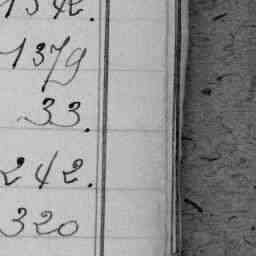 1342.
1379
33.
242.
320